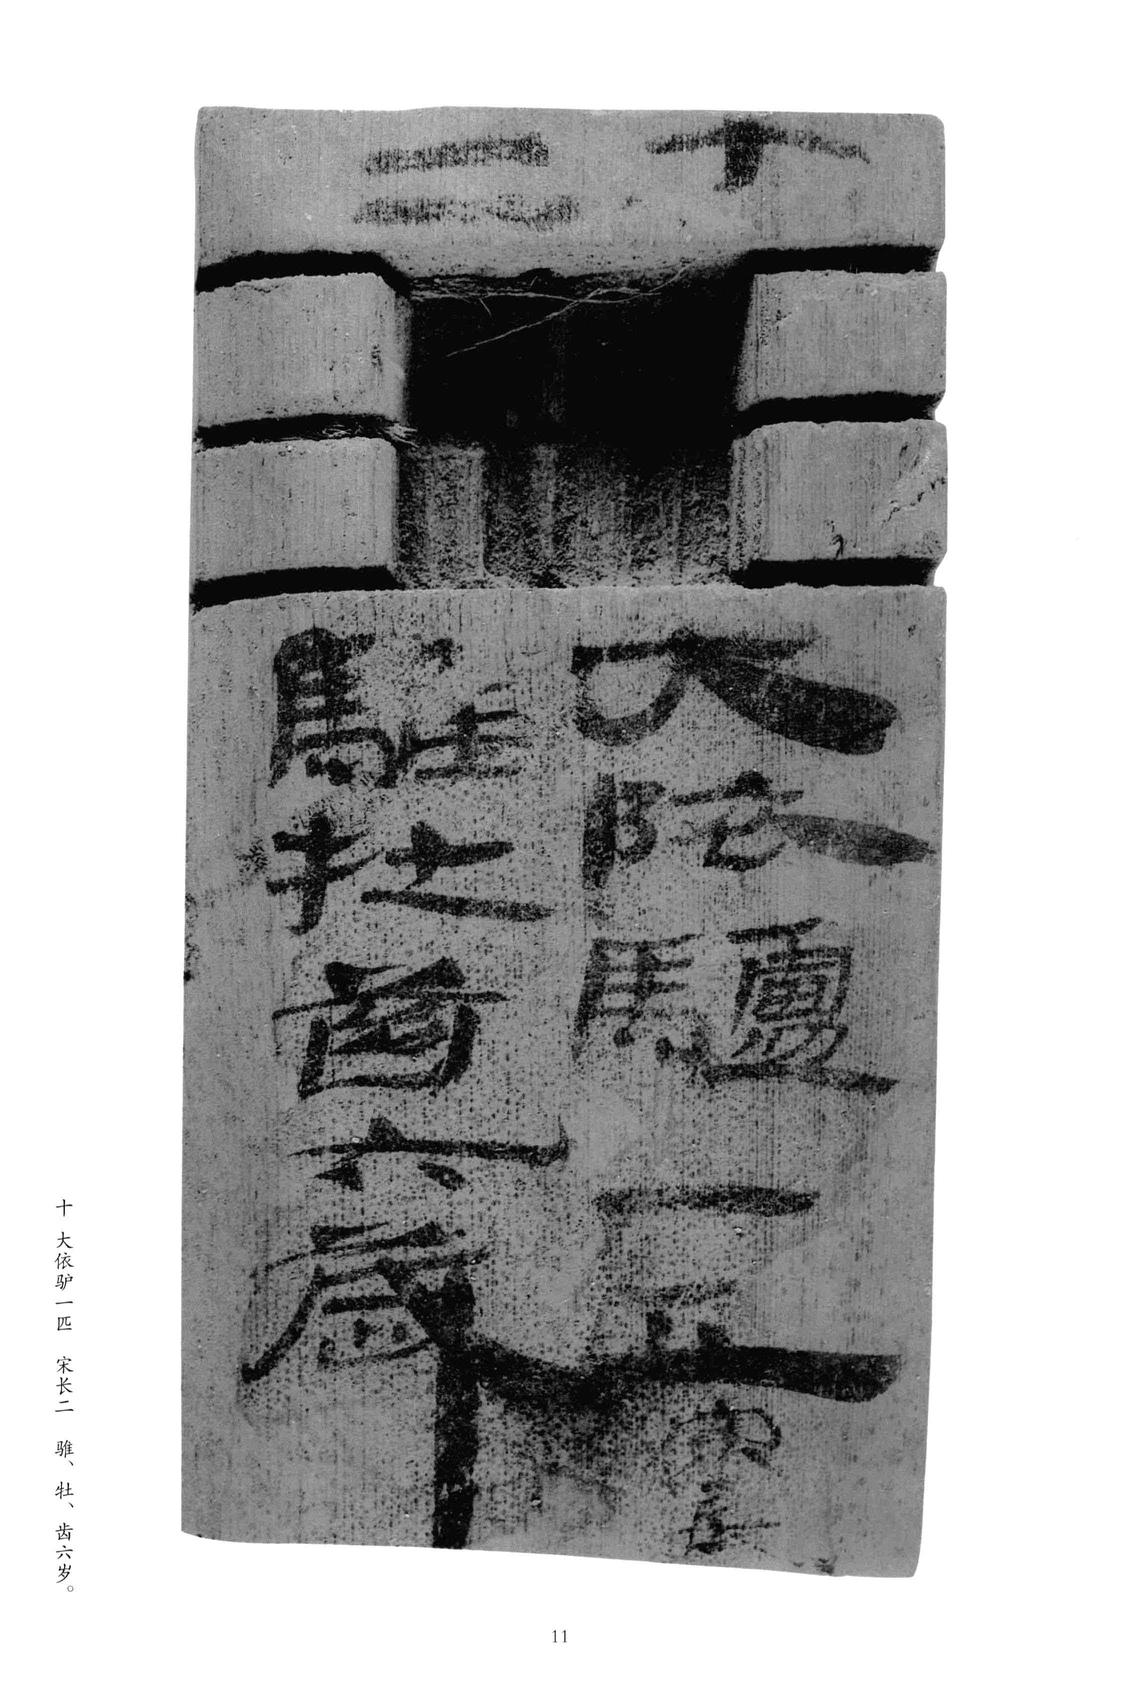 十
二
大驢一匹宋長
騅牡齒六歲
十 大依驴一匹 宋长二 骓、牡、齿六岁。
11